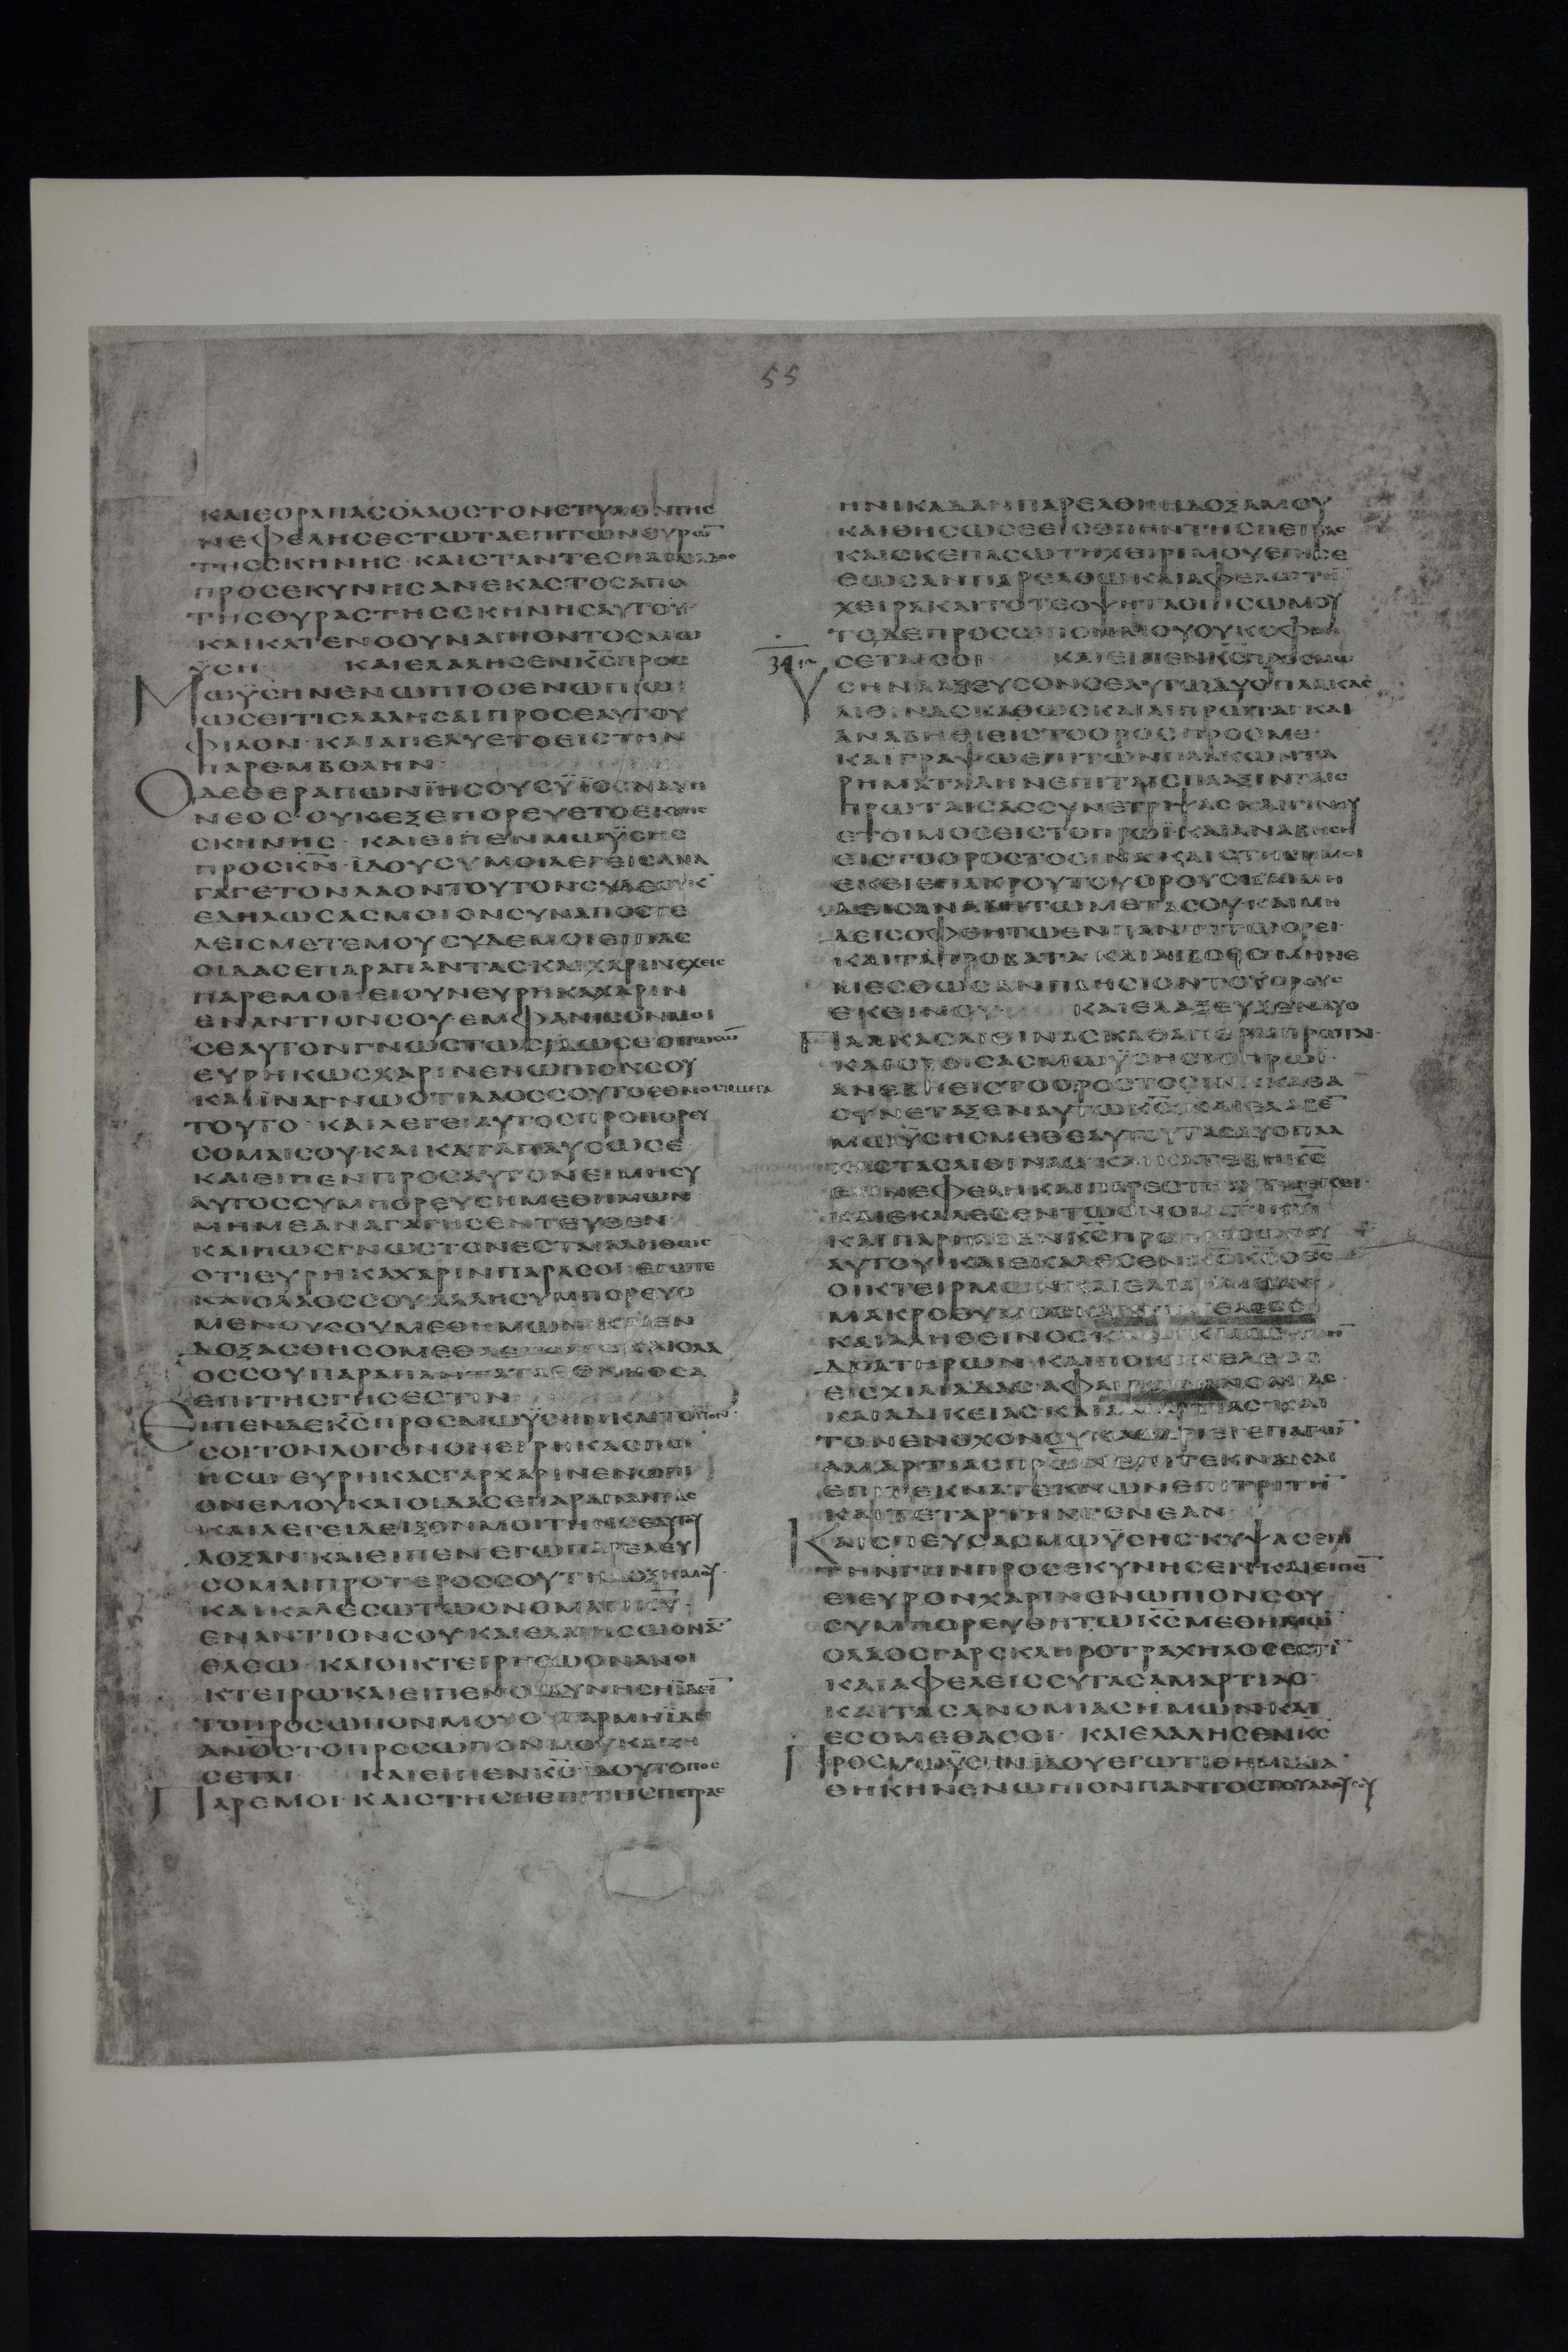 55
ΚΑΙΕΟΡΑΠΑCΟΛΑΟCΤΟΝCΤΥΛΟΝΤΗC
ΝΕΦΕΛΗCΕCΤΩΤΑΕΠΙΤΩΝΘΥΡΩ̅
ΤΗCCΚΗΝΗC·ΚΑΙCΤΑΝΤΕCΠΑCΟΛΑΟC
ΠΡΟCΕΚΥΝΗCΑΝΕΚΑCΤΟCΑΠΟ
ΤΗCΘΥΡΑCΤΗCCΚΗΝΗCΑΥΤΟΥ·
ΚΑΙΚΑΤΕΝΟΟΥΝΑΠΙΟΝΤΟCΜΩ
ΫCΗ ΚΑΙΕΛΑΛΗCΕΝΚ̅C̅ΠΡΟC
ΜΩΫCΗΝΕΝΩΠΙΟCΕΝΩΠΙΩ·
ΩCΕΙΤΙCΛΑΛΗCΑΙΠΡΟCΕΑΥΤΟΥ
ΦΙΛΟΝ·ΚΑΙΑΠΕΛΥΕΤΟΕΙCΤΗΝ
ΠΑΡΕΜΒΟΛΗΝ·
ΟΔΕΘΕΡΑΠΩΝΪΗCΟΥCΫΪΟCΝΑΥΗ
ΝΕΟC·ΟΥΚΕΞΕΠΟΡΕΥΕΤΟΕΚΤΗC
CΚΗΝΗC· ΚΑΙΕΙΠΕΝΜΩΫCΗC
ΠΡΟCΚ̅Ν̅·ΪΔΟΥCΥΜΟΙΛΕΓΕΙCΑΝΑ
ΓΑΓΕΤΟΝΛΑΟΝΤΟΥΤΟΝCΥΔΕΟΥΚ
ΕΔΗΛΩCΑCΜΟΙΟΝCΥΝΑΠΟCΤΕ
ΛΕΙCΜΕΤΕΜΟΥCΥΔΕΜΟΙΕΙΠΑC
ΟΙΔΑCΕΠΑΡΑΠΑΝΤΑCΚΑΙΧΑΡΙΝΕΧΕΙC
ΠΑΡΕΜΟΙ·ΕΙΟΥΝΕΥΡΗΚΑΧΑΡΙΝ
ΕΝΑΝΤΙΟΝCΟΥ·ΕΜΦΑΝΙCΟΝΜΟΙ
CΕΑΥΤΟΝΓΝΩCΤΩCΙΔΩCΕΟΠΩCΑ̅
ΕΥΡΗΚΩCΧΑΡΙΝΕΝΩΠΙΟΝCΟΥ
ΚΑΙΪΝΑΓΝΩΟΤΙΛΑΟCCΟΥΤΟΕΘΝΟCΤΟΜΕΓΑ
ΤΟΥΤΟ·ΚΑΙΛΕΓΕΙΑΥΤΟCΠΡΟΠΟΡΕΥ
CΟΜΑΙCΟΥ·ΚΑΙΚΑΤΑΠΑΥCΩCΕ
ΚΑΙΕΙΠΕΝΠΡΟCΑΥΤΟΝΕΙΜΗCΥ
ΑΥΤΟCCΥΜΠΟΡΕΥCΗΜΕΘΗΜΩΝ
ΜΗΜΕΑΝΑΓΑΓΗCΕΝΤΕΥΘΕΝ·
ΚΑΙΠΩCΓΝΩCΤΟΝΕCΤΑΙΑΛΗΘΩC
ΟΤΙΕΥΡΗΚΑΧΑΡΙΝΠΑΡΑCΟΙ·ΕΓΩΤΕ
ΚΑΙΟΛΑΟCCΟΥ·ΑΛΛΗCΥΜΠΟΡΕΥΟ
ΜΕΝΟΥCΟΥΜΕΘΗΜΩΝ·ΚΑΙΕΝ
ΔΟΞΑCΘΗCΟΜΕΘΑΕΓΩΤΕΚΑΙΟΛΑ
ΟCCΟΥΠΑΡΑΠΑΝΤΑΤΑΕΘΝΗΟCΑ
ΕΠΙΤΗCΓΗCΕCΤΙΝ
ΕΙΠΕΝΔΕΚ̅C̅ΠΡΟCΜΩΫCΗΝΚΑΙΤΟΥΤΟΝ·
CΟΙΤΟΝΛΟΓΟΝΟΝΕΙΡΗΚΑCΠΟΙ
ΗCΩ·ΕΥΡΗΚΑCΓΑΡΧΑΡΙΝΕΝΩΠΙ
ΟΝΕΜΟΥΚΑΙΟΙΔΑCΕΠΑΡΑΠΑΝΤΑC
ΚΑΙΛΕΓΕΙΔΕΙΞΟΝΜΟΙΤΗΝCΕΑΥΤΟΥ
ΔΟΞΑΝ·ΚΑΙΕΙΠΕΝΕΓΩΠΑΡΕΛΕΥ
CΟΜΑΙΠΡΟΤΕΡΟCCΟΥΤΗΔΟΞΗΜΟΥ·
ΚΑΙΚΑΛΕCΩΤΩΟΝΟΜΑΤΙΚ̅Υ̅·
ΕΝΑΝΤΙΟΝCΟΥΚΑΙΕΛΕΗCΩΟΝΑ̅
ΕΛΕΩ·ΚΑΙΟΙΚΤΕΙΡΗCΩΟΝΑΝΟΙ
ΚΤΕΙΡΩΚΑΙΕΙΠΕΝΟΥΔΥΝΗCΗΪΔΕΙ̅
ΤΟΠΡΟCΩΠΟΝΜΟΥΟΥΓΑΡΜΗΪΔΗ
ΑΝΟCΤΟΠΡΟCΩΠΟΝΜΟΥΚΑΙΖΗ
CΕΤΑΙ ΚΑΙΕΙΠΕΝΚ̅C̅ΪΔΟΥΤΟΠΟC
ΠΑΡΕΜΟΙ·ΚΑΙCΤΗCΗΕΠΙΤΗCΠΕΤΡΑC
ΗΝΙΚΑΔΑΝΠΑΡΕΛΘΗΗΔΟΞΑΜΟΥ
ΚΑΙΘΗCΩCΕΕΙCΟΠΗΝΤΗCΠΕΤΡΑC
ΚΑΙCΚΕΠΑCΩΤΗΧΕΙΡΙΜΟΥΕΠΙCΕ
ΕΩCΑΝΠΑΡΕΛΘΩ·ΚΑΙΑΦΕΛΩΤΗ̅
ΧΕΙΡΑΚΑΙΤΟΤΕΟΨΗΤΑΟΠΙCΩΜΟΥ
ΤΟΔΕΠΡΟCΩΠΟΝΜΟΥΟΥΚΟΦΘΗ
34 CΕΤΑΙCΟΙ ΚΑΙΕΙΠΕΝΚ̅C̅ΠΡΟCΜΩ
ΫCΗΝΛΑΞΕΥCΟΝCΕΑΥΤΩΔΥΟΠΛΑΚΑC
ΛΙΘΙΝΑCΚΑΘΩCΚΑΙΑΙΠΡΩΤΑΙ·ΚΑΙ
ΑΝΑΒΗΘΙΕΙCΤΟΟΡΟCΠΡΟCΜΕ·
ΚΑΙΓΡΑΨΩΕΠΙΤΩΝΠΛΑΚΩΝΤΑ
ΡΗΜΑΤΑΑΗΝΕΠΙΤΑΙCΠΛΑΞΙΝΤΑΙC
ΠΡΩΤΑΙCΑCCΥΝΕΤΡΙΨΑCΚΑΙΓΙΝΟΥ
ΕΤΟΙΜΟCΕΙCΤΟΠΡΩΪΚΑΙΑΝΑΒΗCΗ
ΕΙCΤΟΟΡΟCΤΟCΙΝΑ·ΚΑΙCΤΗCΗΜΟΙ
ΕΚΕΙΕΠΑΚΡΟΥΤΟΥΟΡΟΥCΚΑΙΜΗ
ΔΕΙCΑΝΑΒΗΤΩΜΕΤΑCΟΥΚΑΙΜΗ
ΔΕΙCΟΦΘΗΤΩΕΝΠΑΝΤΙΤΩΟΡΕΙ·
ΚΑΙΤΑΠΡΟΒΑΤΑΚΑΙΑΙΒΟΕCΜΗΝΕ
ΜΕCΘΩCΑΝΠΛΗCΙΟΝΤΟΥΟΡΟΥC
ΕΚΕΙΝΟΥ· ΚΑΙΕΛΑΞΕΥCΕΝΔΥΟ
ΠΛΑΚΑCΛΙΘΙΝΑCΚΑΘΑΠΕΡΑΙΠΡΩΤΑΙ·
ΚΑΙΟΡΘΙCΑCΜΩΫCΗCΤΟΠΡΩΪ·
ΑΝΕΒΗΕΙCΤΟΟΡΟCΤΟCΙΝΑΚΑΘΑ
CΥΝΕΤΑΞΕΝΑΥΤΩΚ̅C̅·ΚΑΙΕΛΑΒΕ̅
ΜΩΫCΗCΜΕΘΕΑΥΤΟΥΤΑCΔΥΟΠΛΑ
ΚΑCΤΑCΛΙΘΙΝΑC·ΚΑΙΚΑΤΕΒΗΚ̅C̅
ΕΝΝΕΦΕΛΗΚΑΙΠΑΡΕCΤΗΑΥΤΩΕΚΕΙ·
ΚΑΙΕΚΑΛΕCΕΝΤΩΟΝΟΜΑΤΙΚ̅Υ̅
ΚΑΙΠΑΡΗΛΘΕΝΚ̅C̅ΠΡΟΠΡΟCΩΠΟΥ
ΑΥΤΟΥ·ΚΑΙΕΚΑΛΕCΕΝΚ̅C̅Κ̅C̅ΟΘC
ΟΙΚΤΕΙΡΜΩΝΚΑΙΕΛΕΗΜΩΝ
ΜΑΚΡΟΘΥΜΟC
ΚΑΙΑΛΗΘΕΙΝΟCΚΑΙ
ΕΙCΧΙΛΙΑΔΑC·ΑΦΑΙΡΩΝΑΝΟΜΙΑC·
ΚΑΙΑΔΙΚΕΙΑCΚΑΙΑΜΑΡΤΙΑC·ΚΑΙ
ΤΟΝΕΝΟΧΟΝΟΥΚΑΘΑΡΙΕΙΕΠΑΓΩ̅
ΑΜΑΡΤΙΑCΠΡΩΝΕΠΙΤΕΚΝΑΚΑΙ
ΕΠΙΤΕΚΝΑΤΕΚΝΩΝΕΠΙΤΡΙΤΗ̅
ΚΑΙΤΕΤΑΡΤΗΝΓΕΝΕΑΝ
ΚΑΙCΠΕΥCΑCΜΩΫCΗC·ΚΥΨΑCΕΠΙ
ΤΗΝΓΗΝΠΡΟCΕΚΥΝΗCΕΝ·ΚΑΙΕΙΠΕ̅
ΕΙΕΥΡΟΝΧΑΡΙΝΕΝΩΠΙΟΝCΟΥ
CΥΜΠΟΡΕΥΘΗΤΩΚ̅C̅ΜΕΘΗΜΩ̅
ΟΛΑΟCΓΑΡCΚΛΗΡΟΤΡΑΧΗΛΟCΕCΤΙ̅
ΚΑΙΑΦΕΛΕΙCCΥΤΑCΑΜΑΡΤΙΑC·
ΚΑΙΤΑCΑΝΟΜΙΑCΗΜΩΝ·ΚΑΙ
ΕCΟΜΕΘΑCΟΙ· ΚΑΙΕΛΑΛΗCΕΝΚC
ΠΡΟCΜΩΫCΗΝΙΔΟΥΕΓΩΤΙΘΗΜΙΔΙΑ
ΘΗΚΗΝΕΝΩΠΙΟΝΠΑΝΤΟCΤΟΥΛΑΟΥCΟΥ